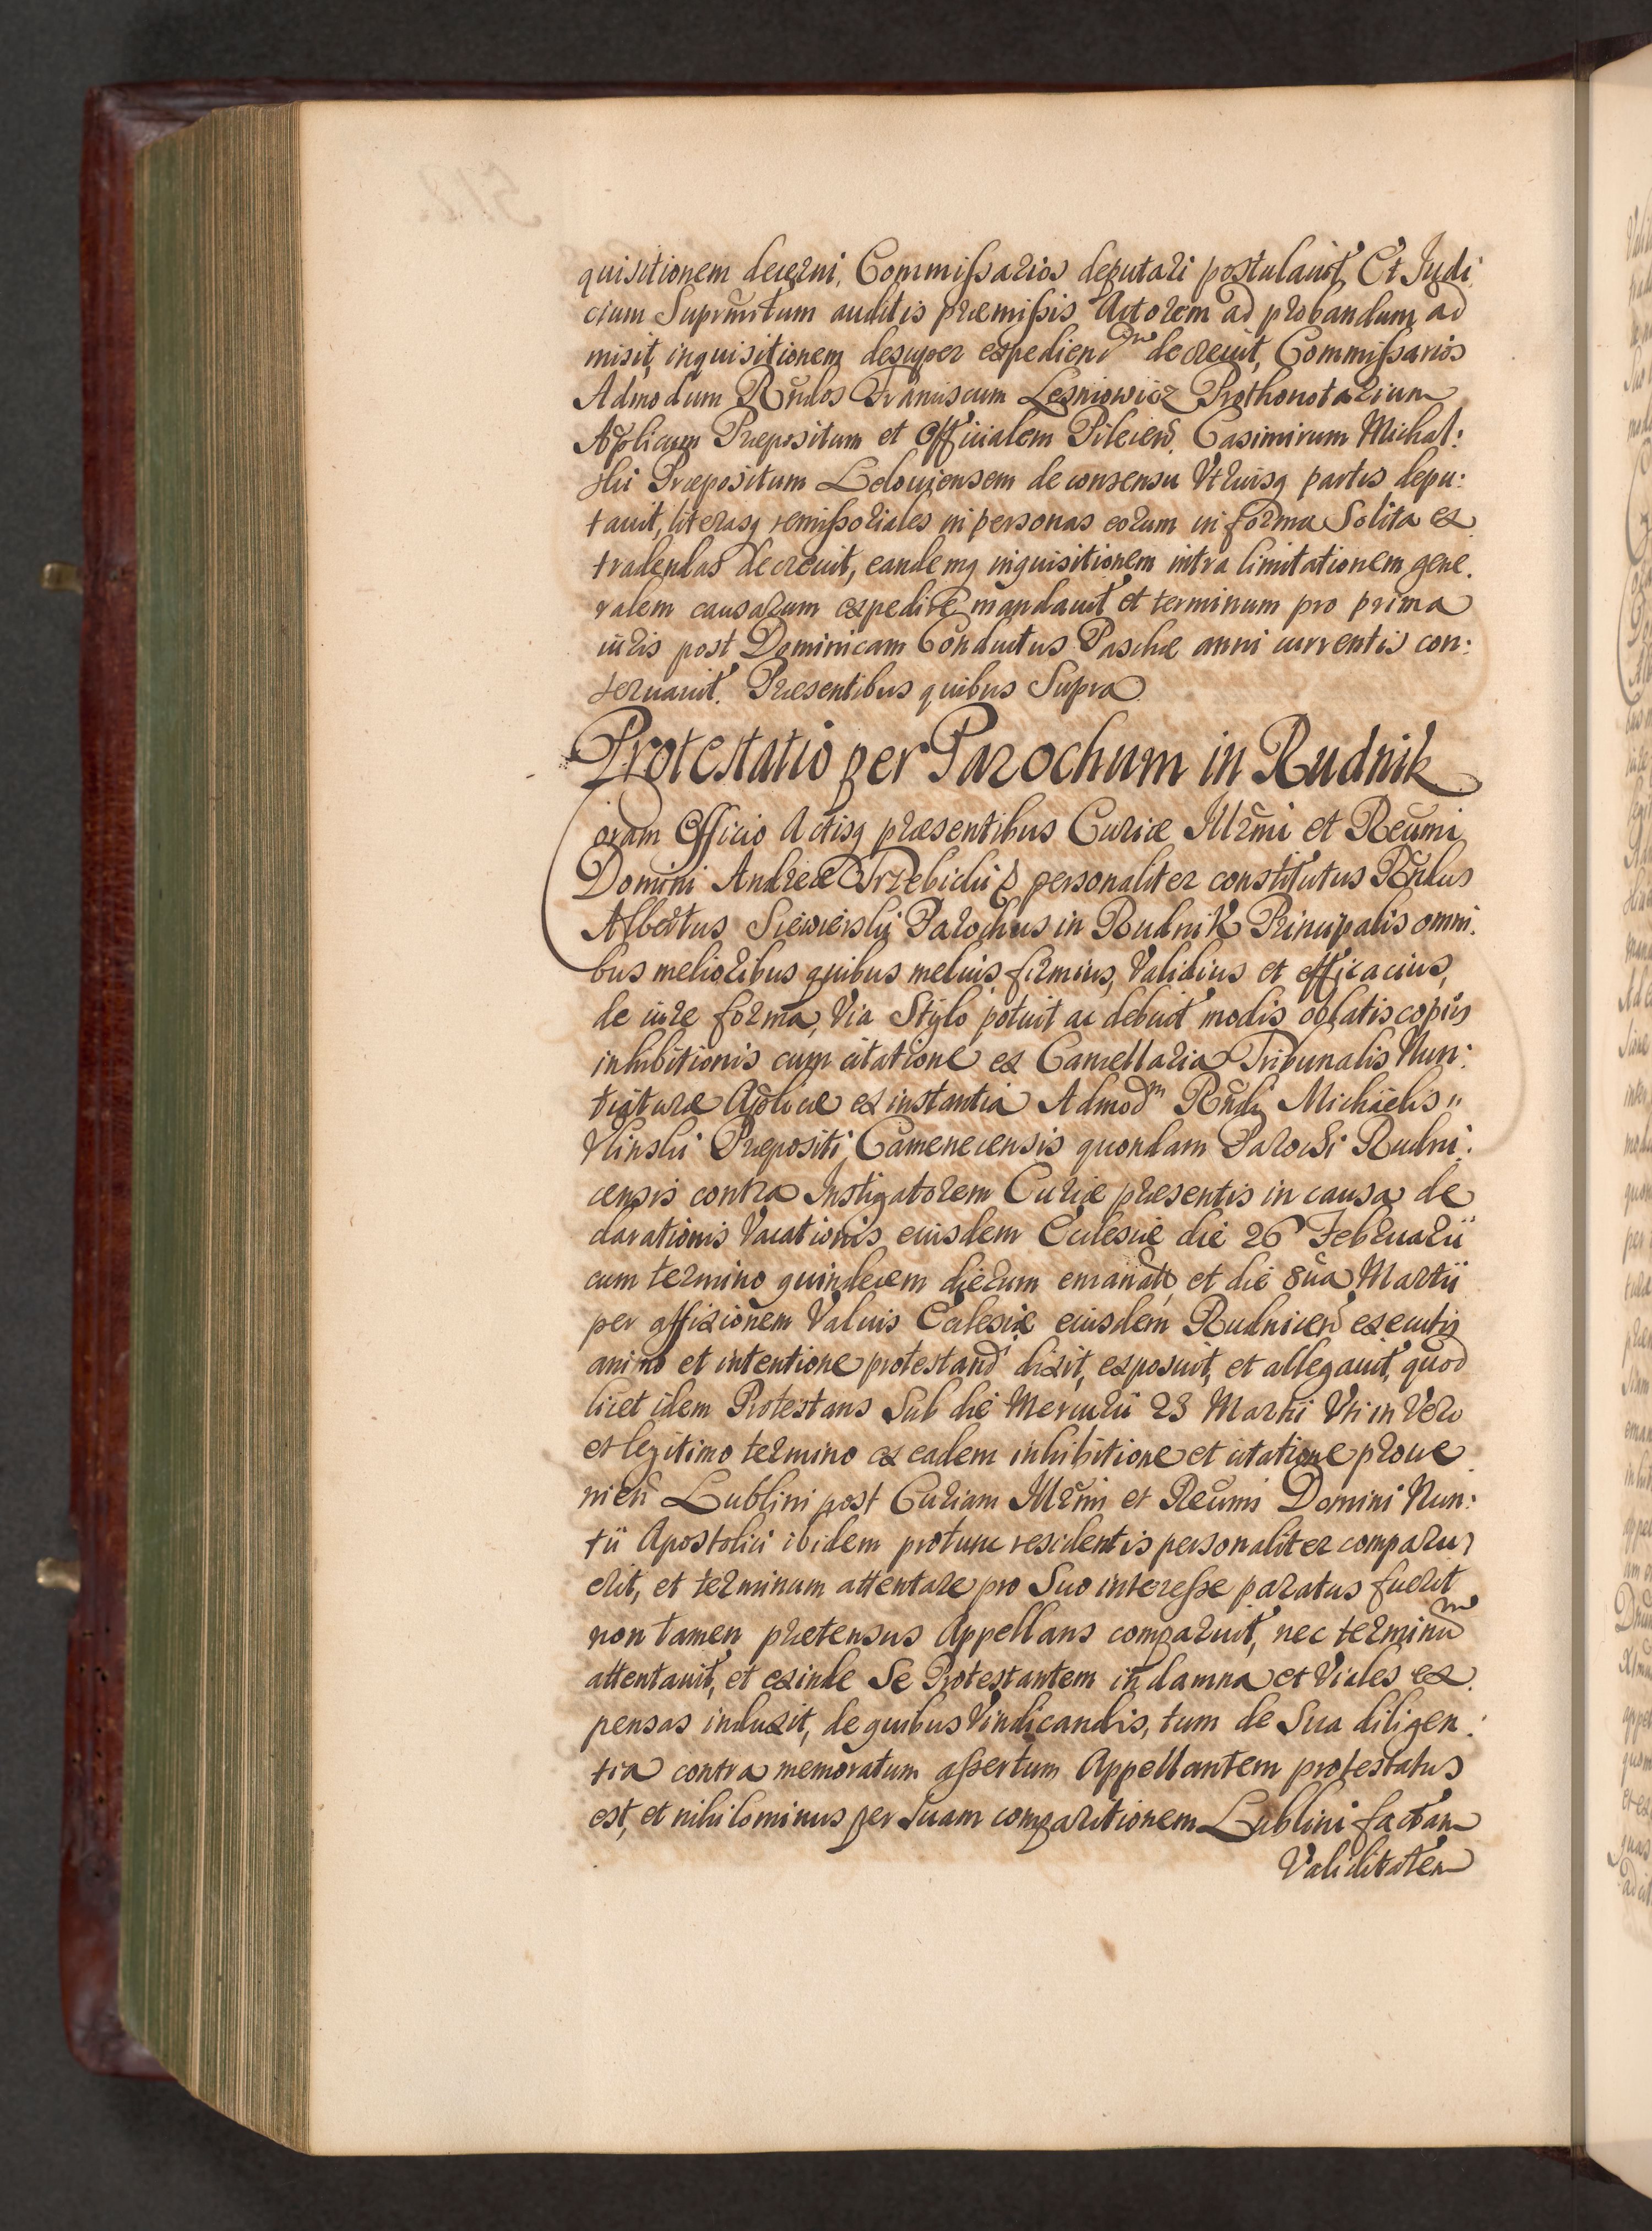 quisitionem decerni, Commissarios deputari postulavit, Et Judi:
cium Suprmtum auditis præmissis Actorem ad probandum ad
misit, inquisitionem desuper expediendm decrevit, Commissarios
Admodum Rndos Franciscum Lesniowicz Prothonotarium
Aplicum Præpositum et Officialem Pilcien. Casimirum Michal:
ski Præpositum Leloviensem de consensu Utriusq partis depu:
tavit, literasq remissoriales in personas eorum in forma Solita ex
tradendas decrevit, eandemq inquisitionem intra limitationem gene.
ralem causarum expedire mandavit et terminum pro prima
iuris post Dominicam Conductus Paschæ anni currentis con:
servavit. Præsentibus quibus Supra
Protestatio per Parochum in Rudnik
Coram Officio Actisq præsentibus Curiæ Illrmi et Reumi
Domini Andreæ Trzebicki & personaliter constitutus Rndus
Albertus Siewierski Parochus in Rudnik Principalis omni.
bus melioribus quibus melius, firmius, Validius et efficacius,
de iure forma, Via Stylo potuit ac debuit modis oblatis copiis
inhibitionis cum citatione ex Cancellaria Tribunalis Nun:
tiaturæ Aplicæ ex instantia Admodm Rndi Michaelis
Præpositi Camenecensis quondam Parochi Rudni:
censis contra Instigatorem Curiæ præsentis in causa de
clarationis Vacationis eiusdem Ecclesiæ die 26 Februarii
cum termino quindecem dierum emanatt, et die 8va Martii
per affixionem Valvis Ecclesiæ eiusdem Rudnicen executis
animo et intentione protestand dixit, exposuit, et allegavit, quod
licet idem Protestans Sub die Mercurii 23 Martii Uti in Vero
et legitimo termino ex eadem inhibitione et citatione prove
nien Lublini post Curiam Illrmi et Reumi Domini Nun:
tii Apostolici ibidem protunc residentis personaliter comparu
erit, et terminum attentare pro Suo interesse paratus fuerit
non tamen prætensus Appellans comparuit, nec terminum
attentavit, et exinde Se Protestantem in damna et Viales ex.
pensas induxit, de quibus Vindicandis, tum de Sua diligen:
tia contra memoratum assertum Appellantem protestatus
est, et nihilominus per Suam comparitionem Lublini factam
Validitatem